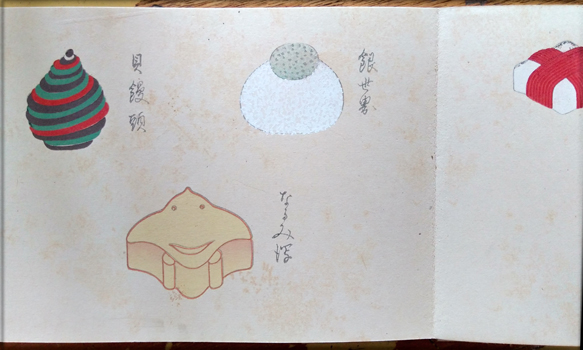 銀世界
貝饅頭
なるみ潟